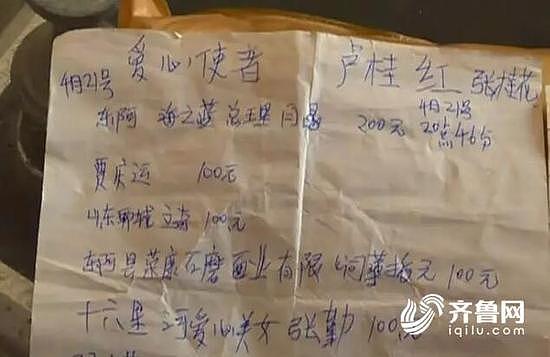 爱心使者 卢桂红 张桂花
4月21号
4月21号
东阿 海之蓝 总经理 闫 200元 20点46分
贾庆运 100元
山东聊城 100元
东阿县荣康石磨面业有限 100元
十六里河爱心美女 张勤 100元
齐鲁网
iqilu.com